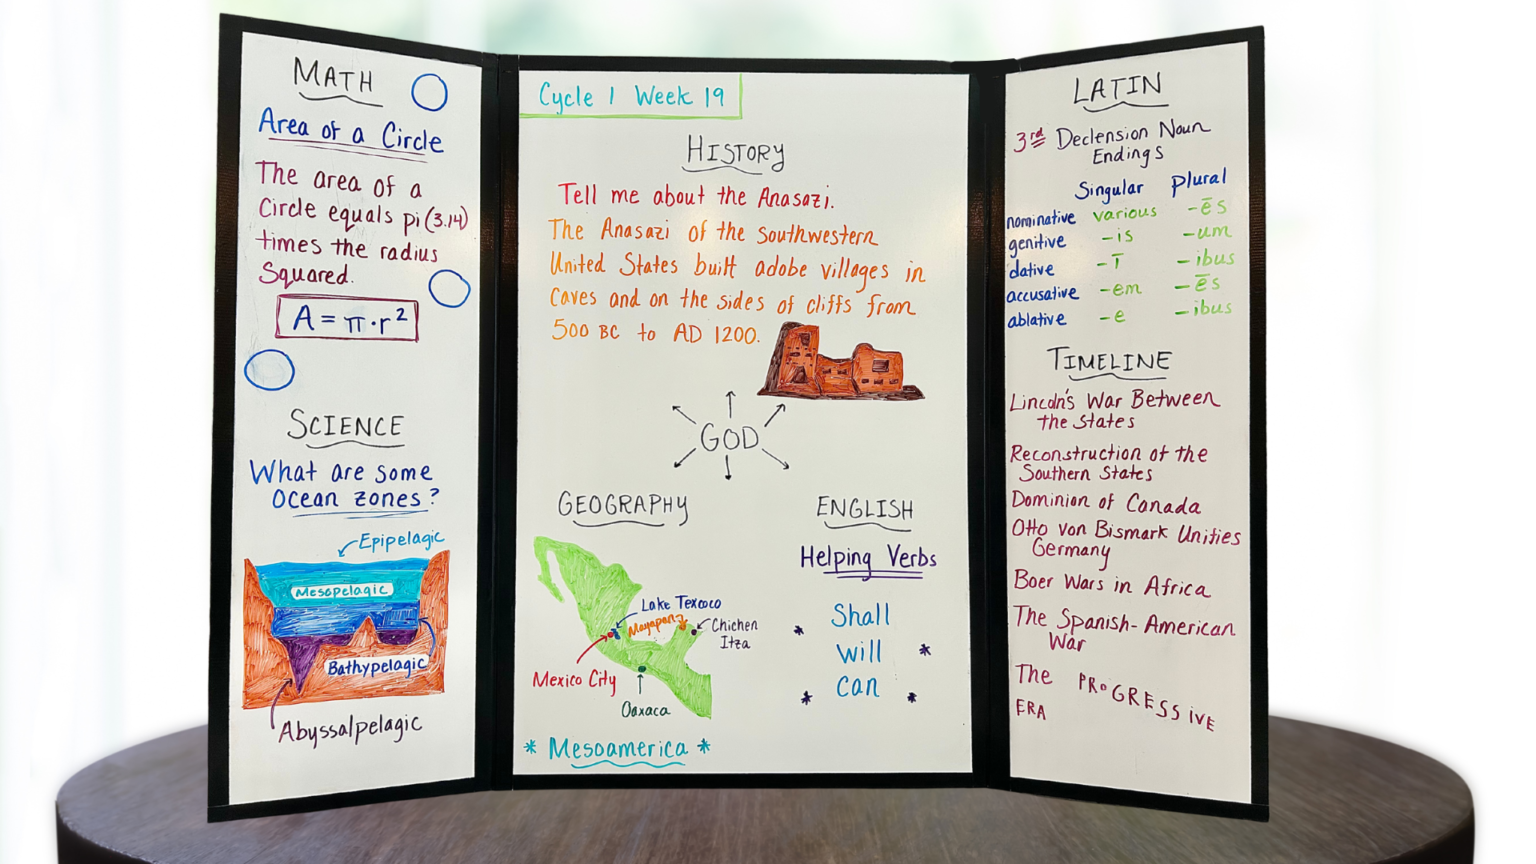 MATH
Area of a Circle
The area of a
Circle equals pi (3.14)
times the radius
Squared.
A = π·r²
SCIENCE
What are some
Ocean zones?
Epipelagic
Mesopelagic
Bathypelagic
Abyssalpelagic
Cycle 1 Week 19
HISTORY
Tell me about the Anasazi.
The Anasazi of the Southwestern
United States built adobe villages in
Caves and on the sides of cliffs from
500 BC to AD 1200.
GOD
GEOGRAPHY
Lake Texcoco
Mayapan
Chichen
Itza
Mexico City
Oaxaca
* Mesoamerica *
ENGLISH
Helping Verbs
Shall
will
can
LATIN
3rd Declension Noun
Endings
Singular Plural
nominative various -ēs
genitive -is -um
dative -ī -ibus
accusative -em -ēs
ablative -e -ibus
TIMELINE
Lincoln's War Between
the States
Reconstruction of the
Southern States
Dominion of Canada
Otto von Bismark Unifies
Germany
Boer Wars in Africa
The Spanish-American
War
The PROGRESSIVE
ERA